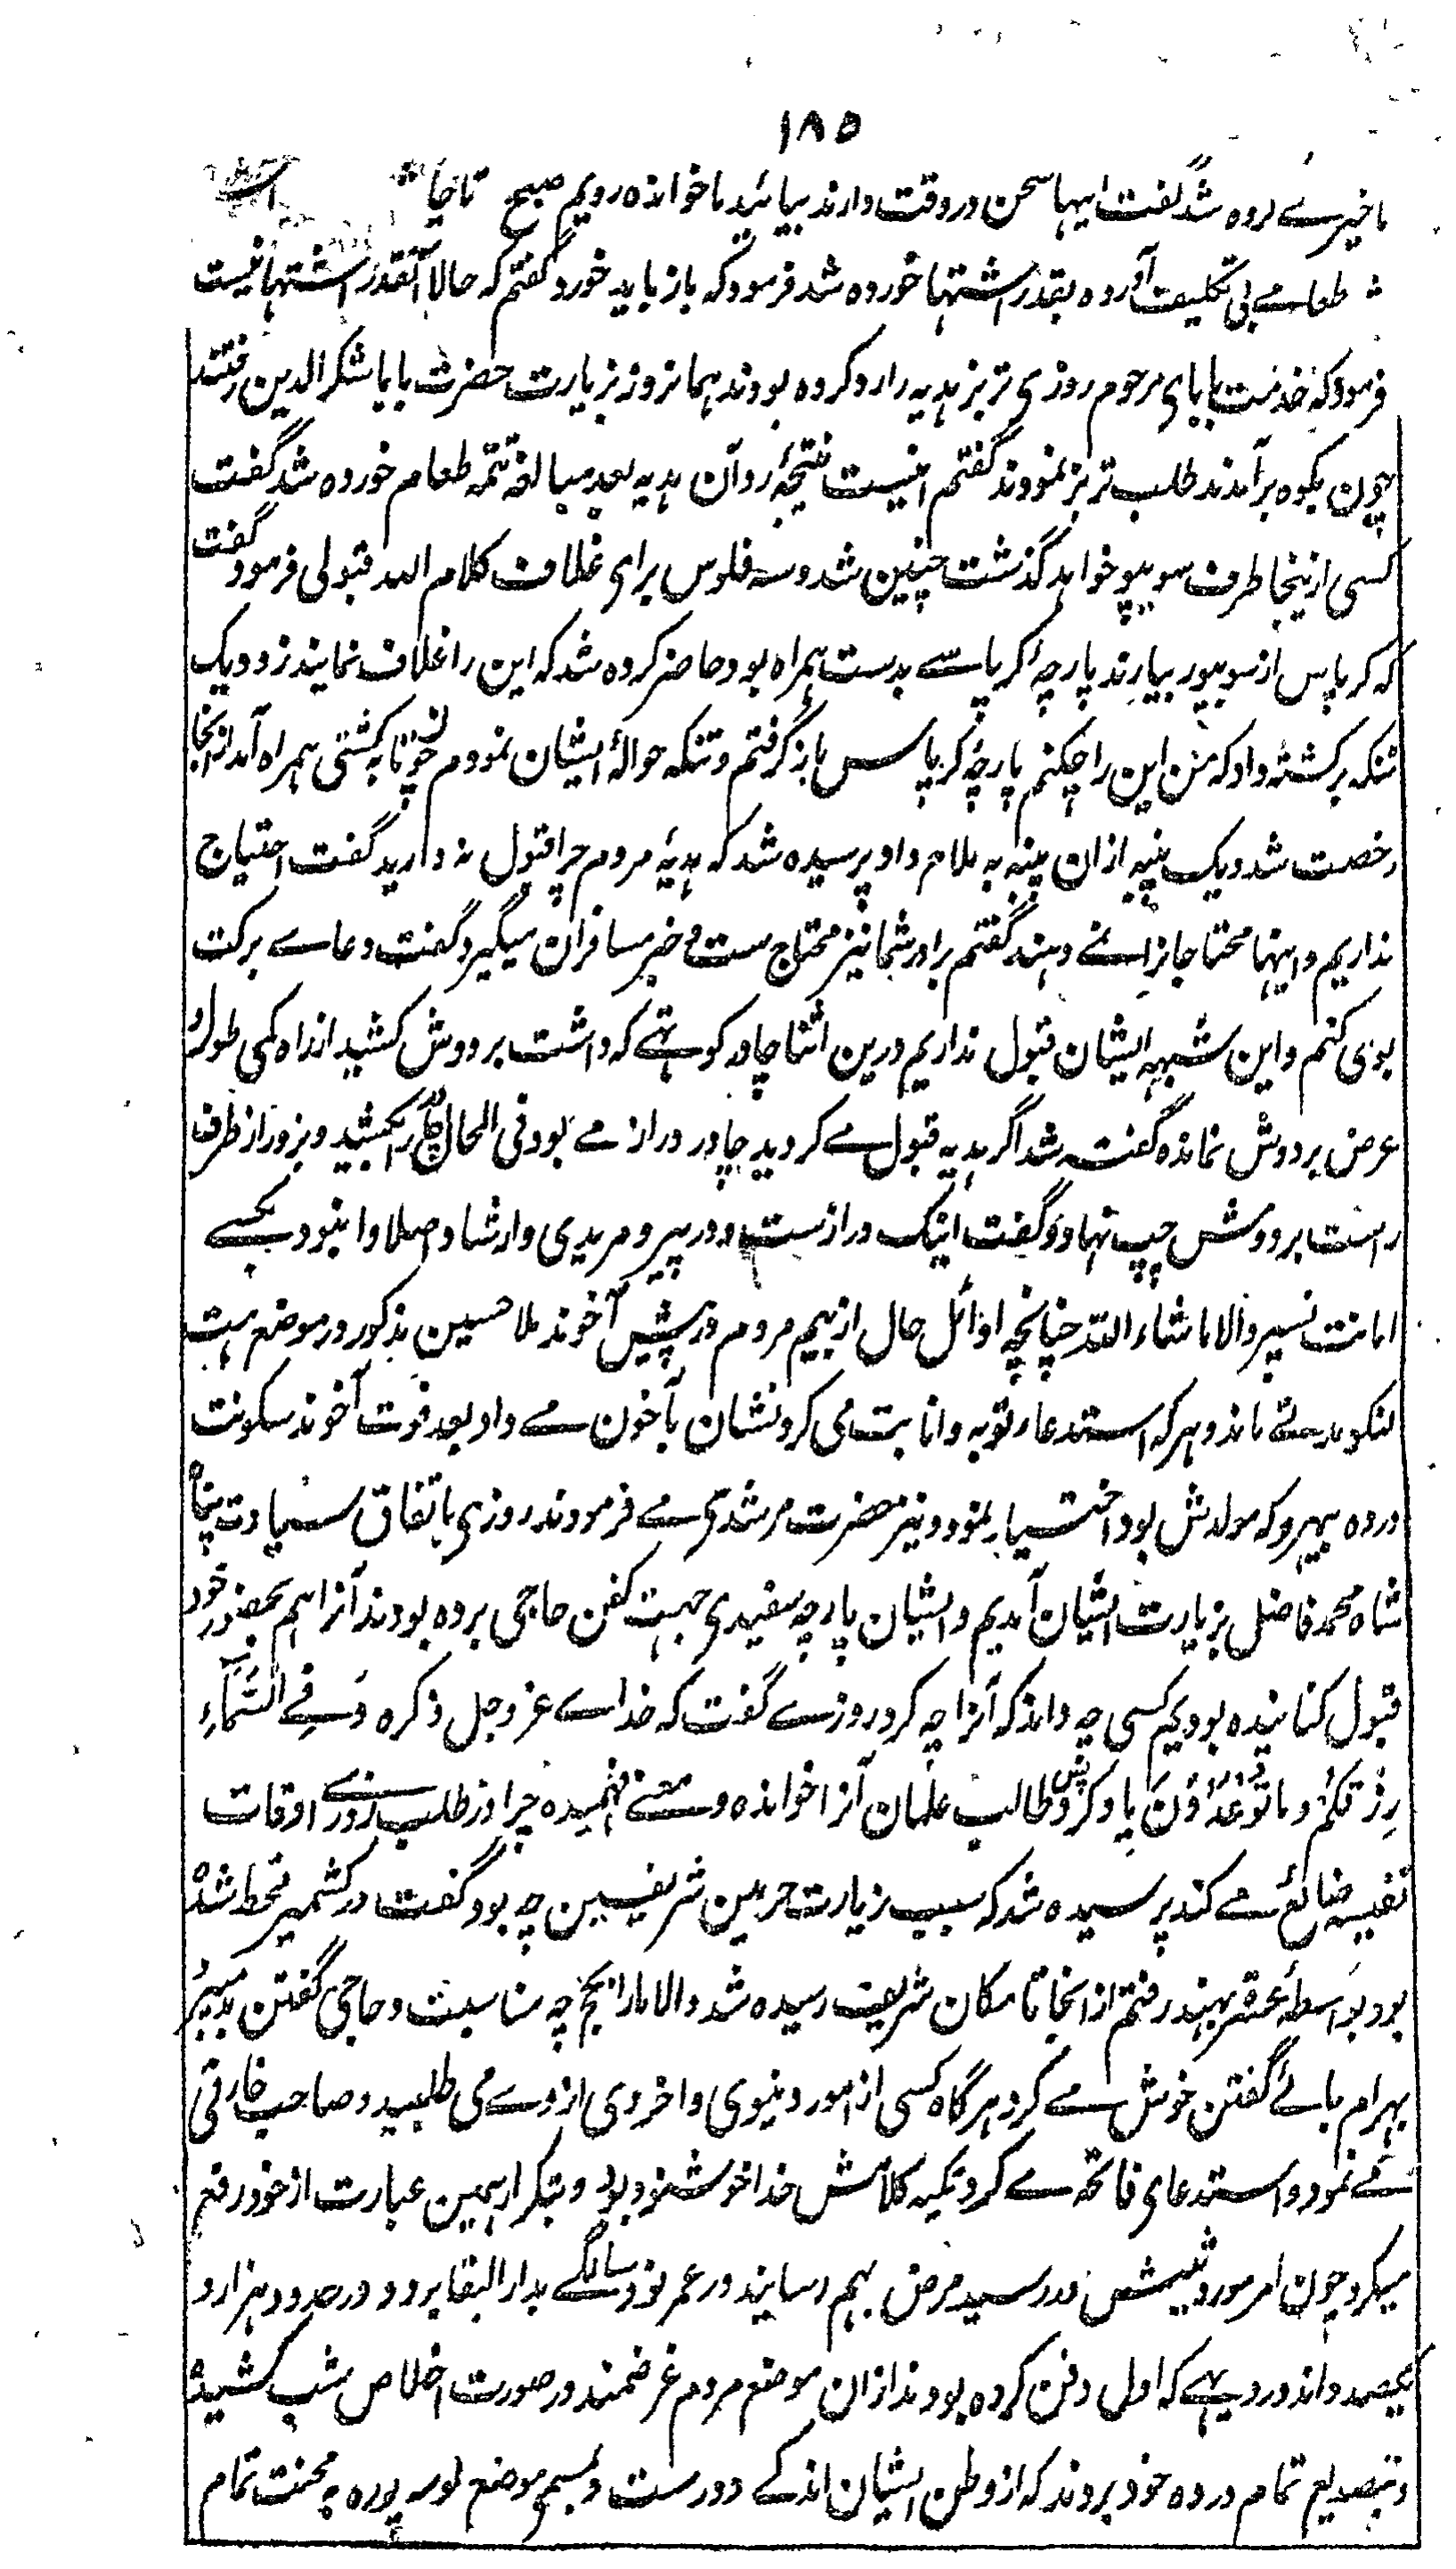 ۱۸۵
تاخیرے کرده شد گفت اینها سخن در وقت دارند بیائید تا خوانده رویم صبح تا
طعامے بی تکلیف آورده بقدر اشتها خورده شد فرمود که باز باید خورد گفتم که حالا آنقدر اشتها نیست
فرمود که خدمت بابای مرحوم روزی تربز هدیه را رد کرده بودند همانروز بزیارت حضرت بابا شکرالدین رفتند
چون بکوه برآمدند طلب تربز نمودند گفتم اینست نتیجهٔ رد آن هدیه بعد مبالغه تتمه طعام خورده شد گفت
کسی ازینجا طرف سوپور خواهد گذشت چنین شد و سه فلوس برای غلاف کلام الله قبولی فرمود گفت
که کرپاس از سوپور بیارند پارچه کرپاسے بدست همراه بود حاضر کرده شد که این را غلاف نمایند زود یک
تنکه برکشته داد که من این را چکنم پارچهٔ کرپاس باز گرفتم و تنکه حوالهٔ ایشان نمودم تا به کشتی همراه آمد ازانجا
رخصت شد و یک پنبه ازان پنبه به بلام داد پرسیده شد که هدیهٔ مردم چرا قبول نه دارید گفت احتیاج
نداریم و اینها محتاجانرا نمے دهند گفتم برادر شما نیز محتاج ست و خبر مسافران میگیرد گفت دعاے برکت
بوی کنم و این شبهه ایشان قبول نداریم درین اثنا چادر کوتهے که داشت بر دوش کشید از راه کمی طول و
عرض بر دوش نمانده گفته شد اگر هدیه قبول مے کردید چادر دراز مے بود فی الحال چادر را کشید و بزور از طرف
راست بر دوش چپ نهاد و گفت اینک دراز ست و در پیر و مریدی و ارشاد اصلا وا نبود بکسے
امانت نسپرد الا ماشاء الله چنانچه اوائل حال از بیم مردم در پیش آخوند ملا حسین مذکور در موضع هست
لنکو مدتے ماند و هر که استدعاء توبه و انابت می کرد نشان بآخون مے داد بعد فوت آخوند سکونت
در ده بیهرو که مولدش بود اختیار نمود و نیز حضرت مرشدی مے فرمودند روزی باتفاق سیادت پناه
شاه محمد فاضل بزیارت ایشان آمدیم و ایشان پارچه سفیدی جهت کفن حاجی برده بودند آنرا هم بحضور خود
قبول کنانیده بودیم کسی چه داند که آنرا چه کرد روزے گفت که خداے عز و جل ذکره وَفِے السَّمَآءِ
رِزْقُکُمْ وَمَا تُوْعَدُوْنَ یاد کرد پس طالب علمان آنرا خوانده و معنے فهمیده چرا در طلب روزے اوقات
نفیسه ضائع مے کند پرسیده شد که سبب زیارت حرمین شریفین چه بود گفت در کشمیر قحط شده
بود بواسطهٔ عشر بهند رفتم ازانجا تا مکان شریف رسیده شد والا ما را بحج چه مناسبت و حاجی گفتن بد میبرد
بهرام بابائے گفتن خوش مے کرد هر گاه کسی از امور دنیوی و اخروی از وے می طلبید و صاحب خارقی
مے نمود و استدعای فاتحه مے کرد تکیه کلامش خدا خوشنود بود و بتکرار همین عبارت از خود رفع
میکرد چون امر موردثیتش در رسید مرض بهم رسانید در عمر نود سالگے بدار البقا برد و در حدود هزار و
یکصد و اند در دیهے که اول دفن کرده بودند ازان موضع مردم غرضمند در صورت اخلاص شب کشیده
و بتصدیع تمام در ده خود بردند که از وطن ایشان اندکے دور ست و بسعی موضع لوسه پوره به محنت تمام